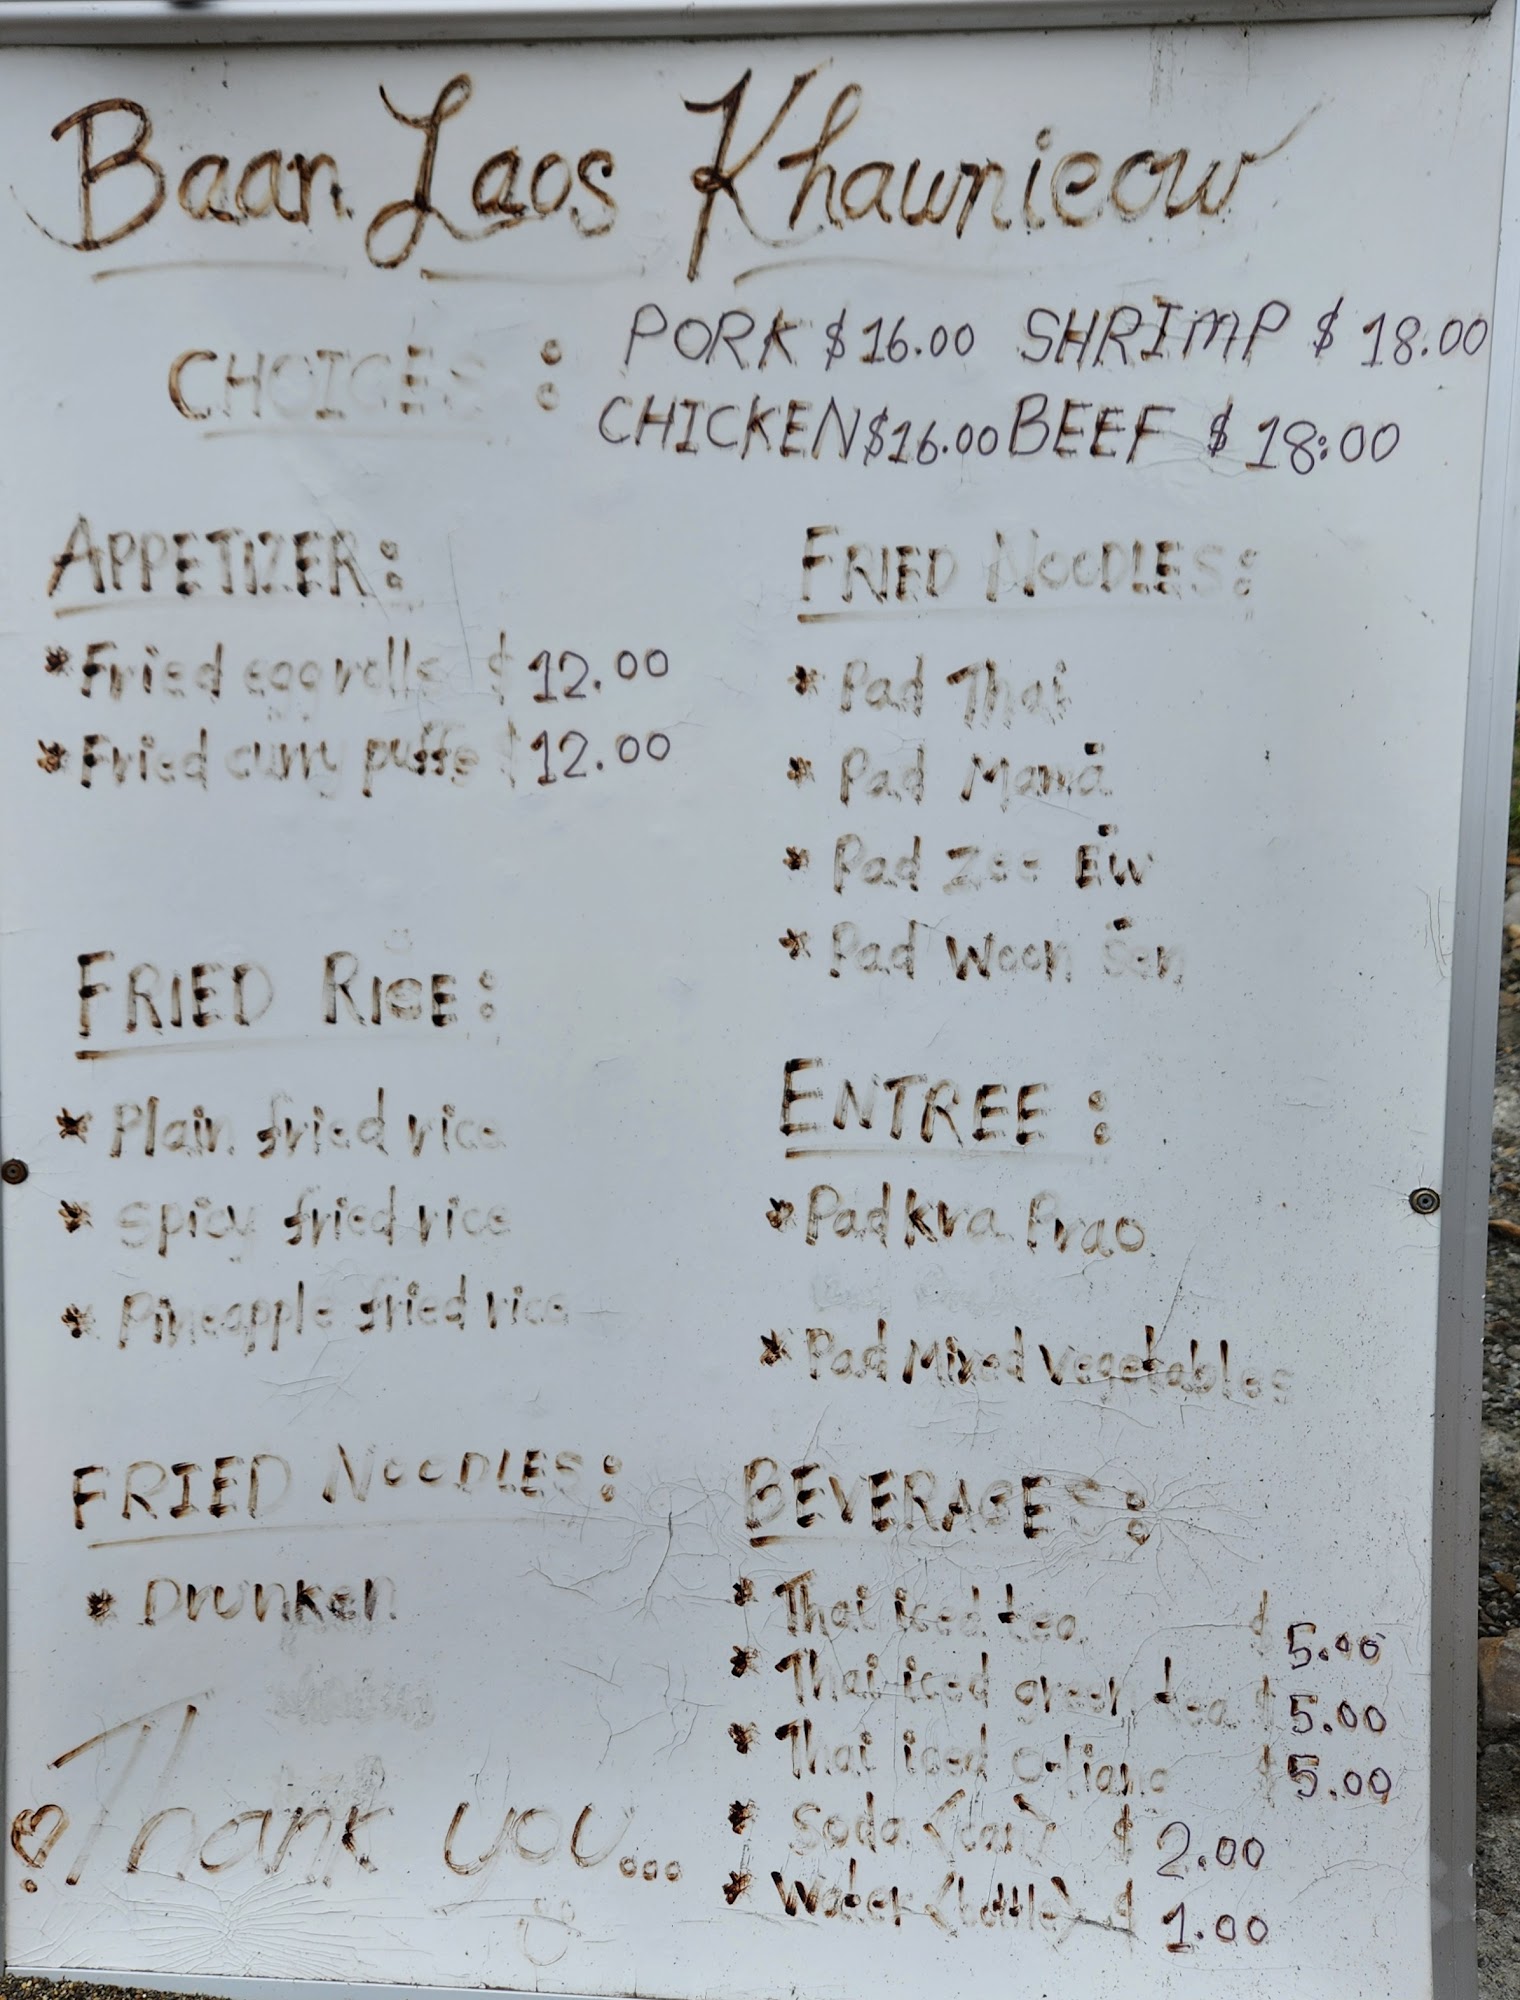 Baan Laos Khaunieow
CHOICES : PORK $16.00 SHRIMP $18.00
CHICKEN $16.00 BEEF $18:00
APPETIZER:
* Fried egg rolls $12.00
* Fried curry puffs $12.00
FRIED RICE:
* Plain fried rice
* Spicy fried rice
* Pineapple fried rice
FRIED NOODLES:
* Drunken
FRIED NOODLES:
* Pad Thai
* Pad Mama
* Pad Zee Ew
* Pad Woon Sen
ENTREE :
* Pad Kra Prao
* Pad Mixed Vegetables
BEVERAGES:
* Thai iced tea $5.00
* Thai iced green tea $5.00
* Thai iced O-liang $5.00
* Soda (can) $2.00
* Water (bottle) $1.00
Thank you...